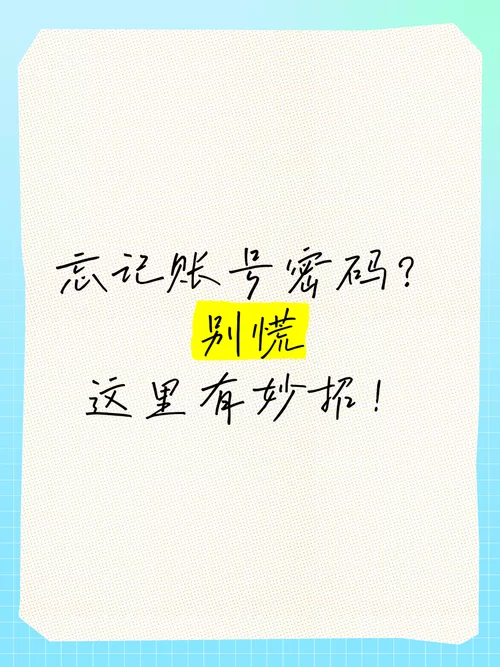 忘记账号密码?
别慌
这里有妙招!